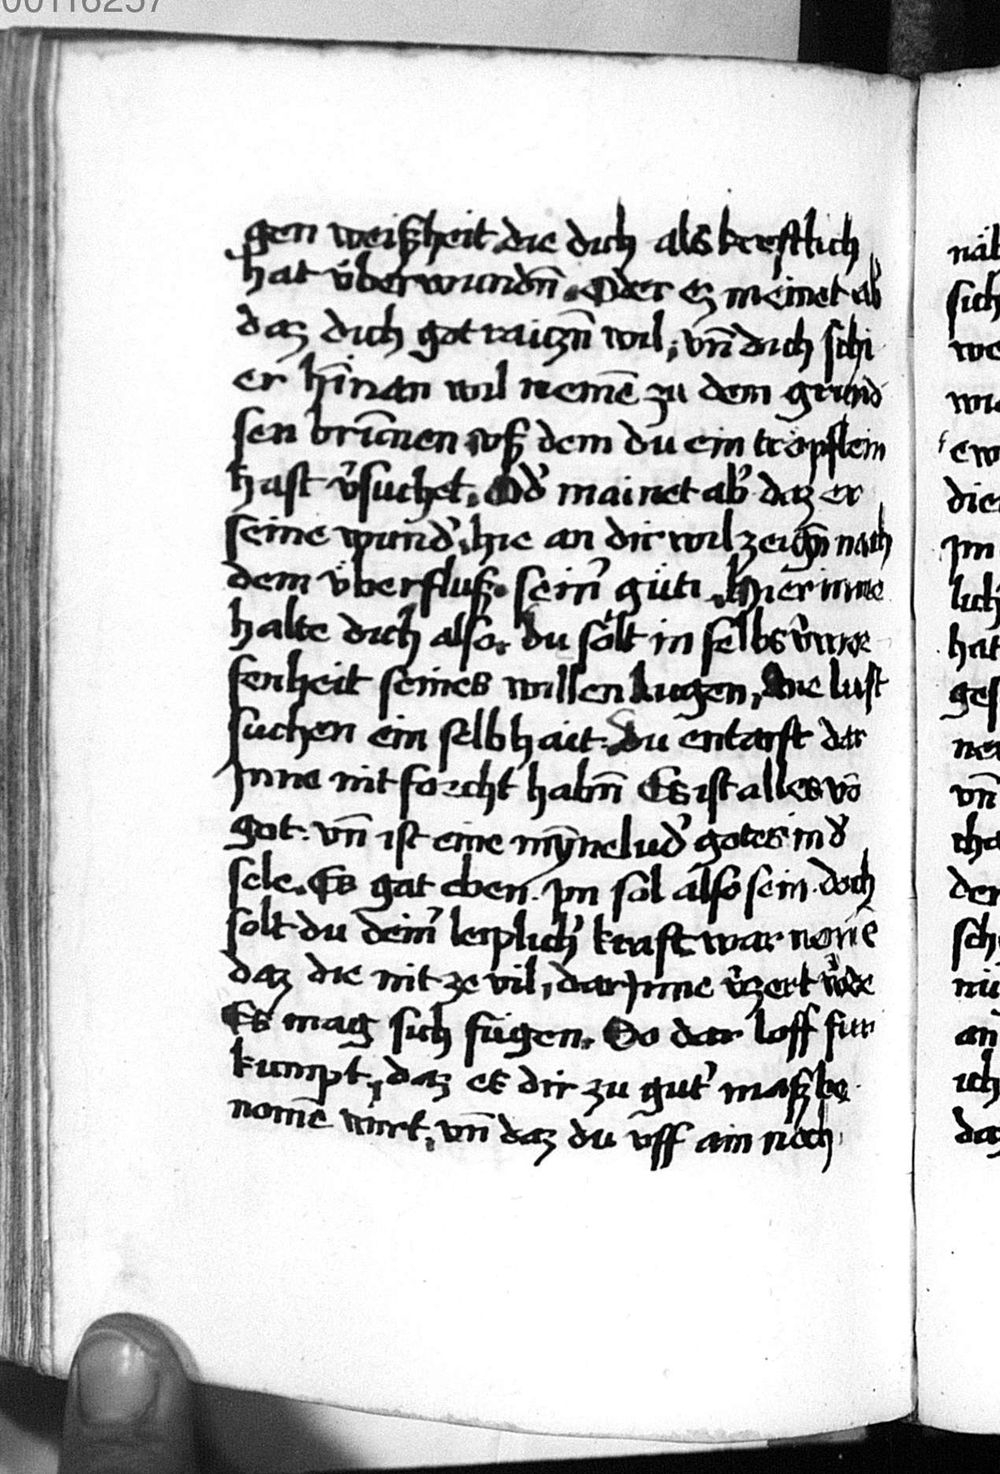 00116257
gen weißheit die dich als kreftlich
hat v̈berwundn̄. Oder ez meinet ab̓
daz dich got raiczn̄ wil, vn̄ dich schi
er hīnan wil nemē zu dem grund
sen brūnen, vß dem du ein tröpflein
hast v̓suchet. Od̓ mainet ab̓ daz er
seine wund̓, hie an dir wil zeign̄ nach
dem v̈berfluß. sein̓ güti. Hier inne
halte dich also. du solt in selbs
senheit seines willen lugen, Ane lust
suchen ein selbhait. Du entarft dar
Inne nit forcht habn̄ Es ist alles vō
got. vn̄ ist eine mȳnelud̓ gotes in d̓
sele. Es gat eben. Im sol also sein. doch
solt du dein̓ leiplich̓ kraft war nemē
daz die nit ze vil, dar Inne v̓zert w̓de
Es mag sich fügen. So dar loff für
kumpt, daz es dir zu gut̓ maß be
nomē wirt, vn̄ daz du vff ain noch
näh
sich
we
ew
die
Im
lich
hat
ges
vn̄
der
sch
an
ich
daz